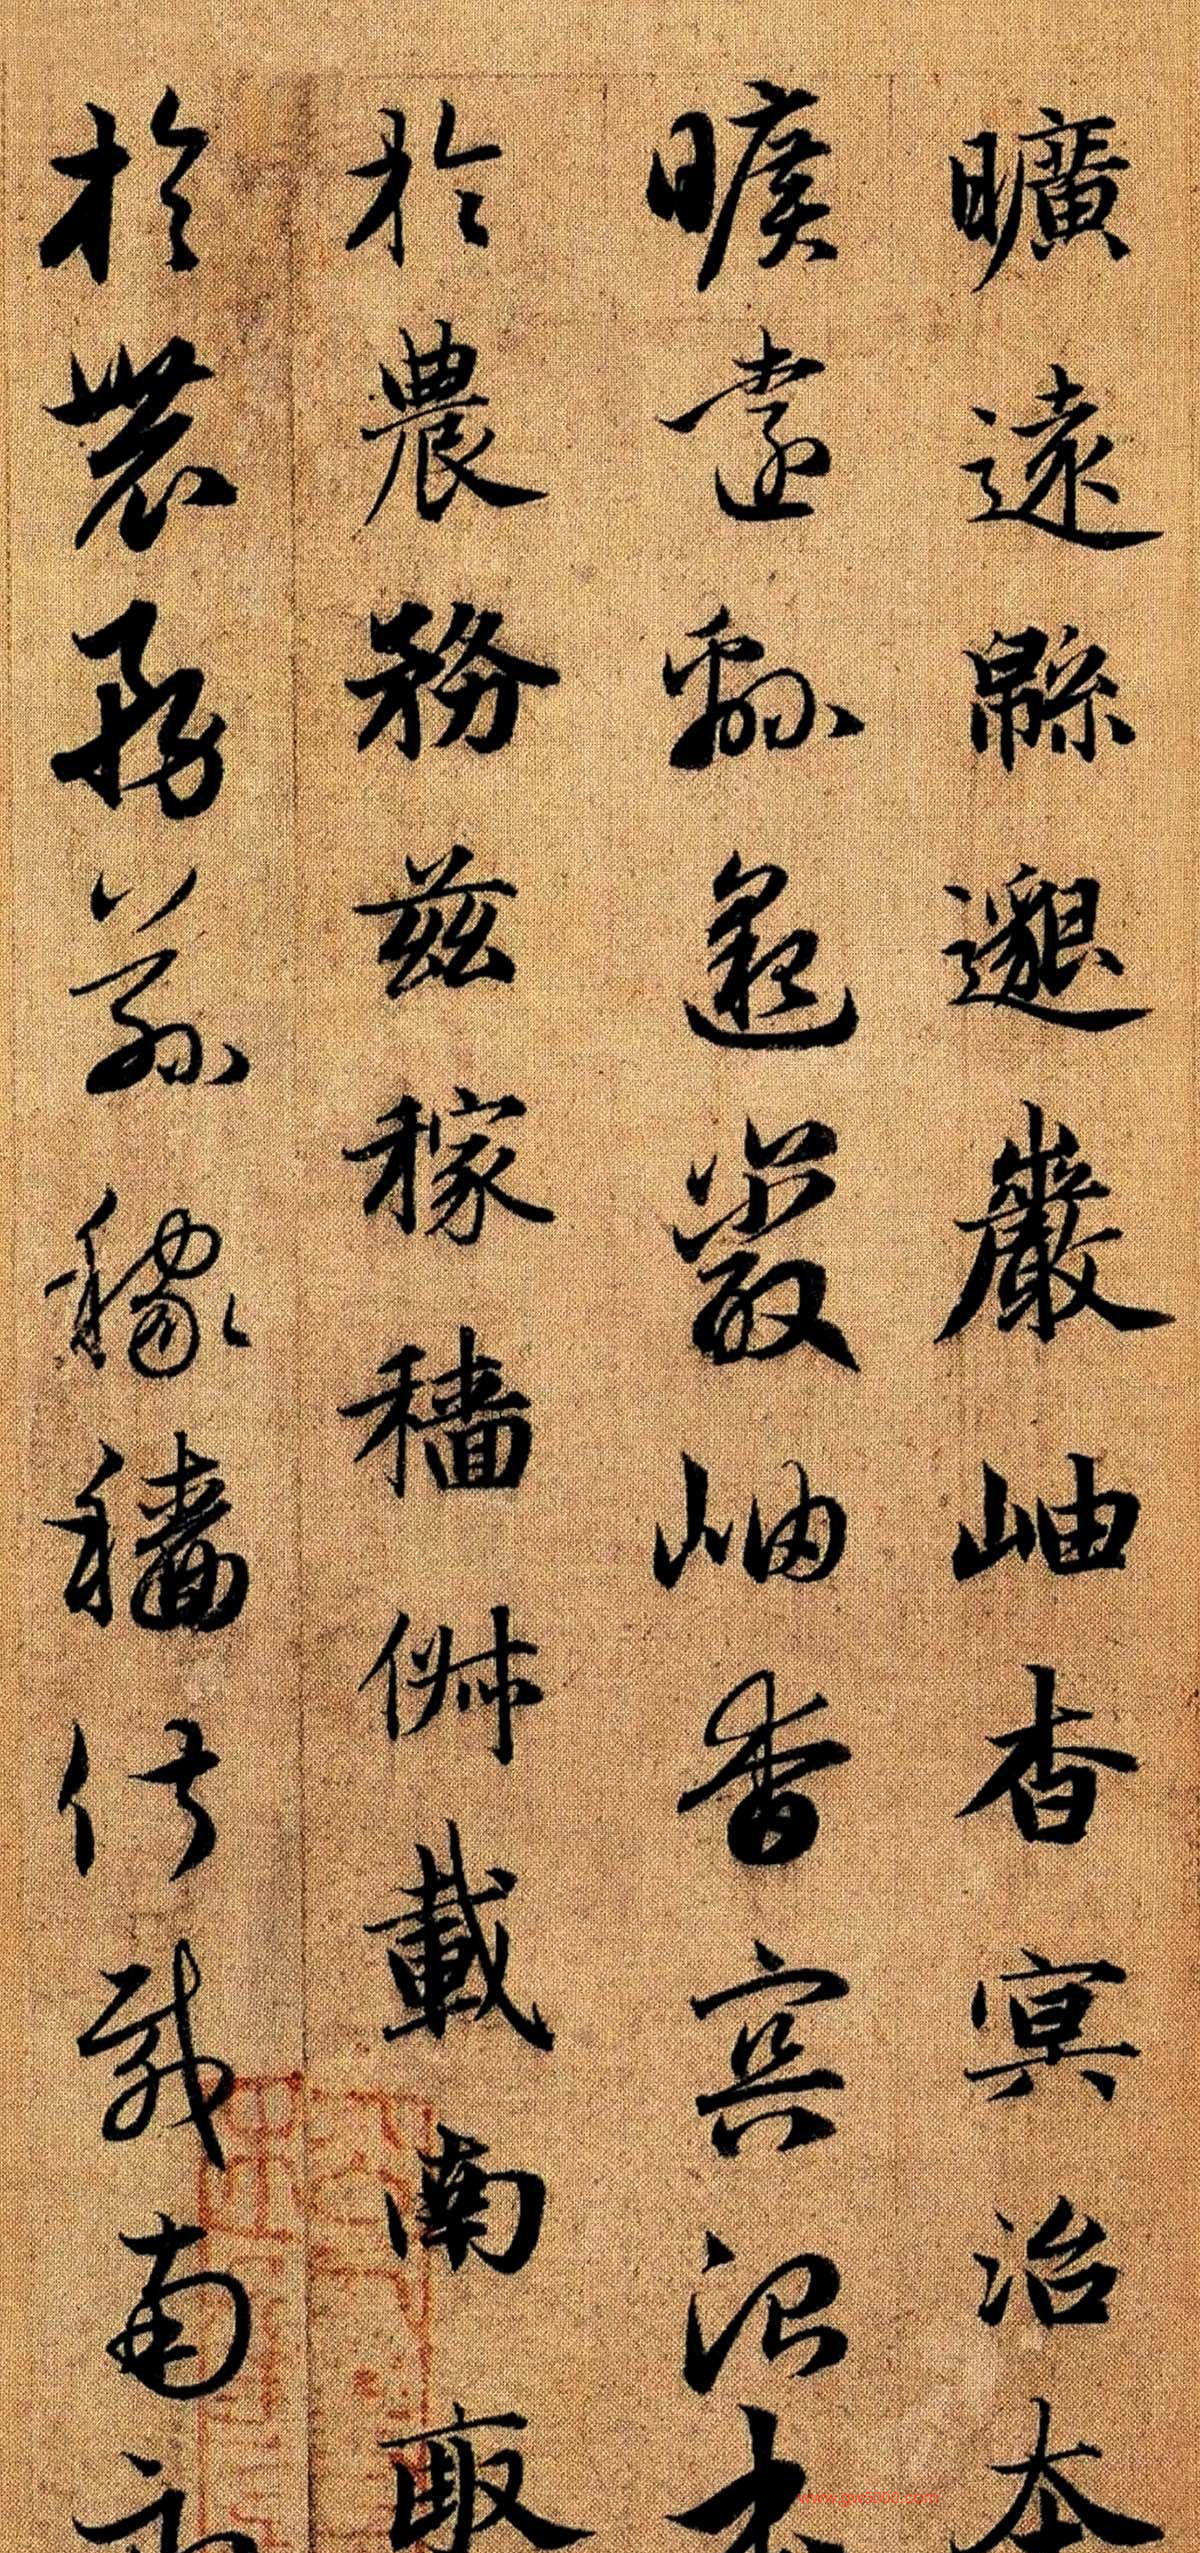 曠遠緜邈巖岫杳冥治本
曠遠緜邈巖岫杳冥治本
於農務茲稼穡俶載南畝
於農務茲稼穡俶載南畝
www.gw5000.com